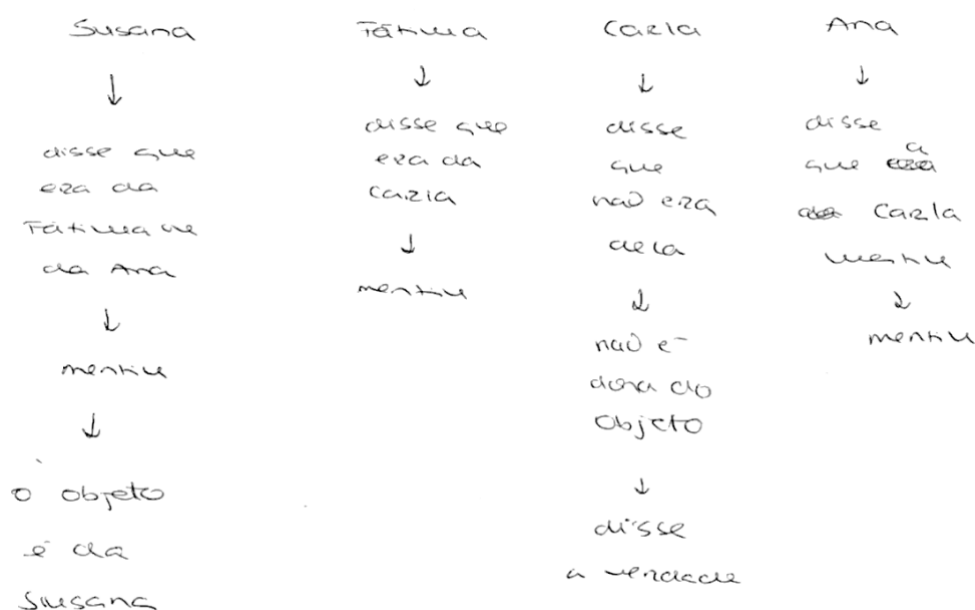 Susana
↓
disse que
era da
Fátima ou
da Ana
↓
mentiu
↓
o objeto
é da
Susana
Fátima
↓
disse que
era da
Carla
↓
mentiu
Carla
↓
disse
que
não era
dela
↓
não é
dona do
objeto
↓
disse
a verdade
Ana
↓
disse
que a
Carla
mentiu
↓
mentiu